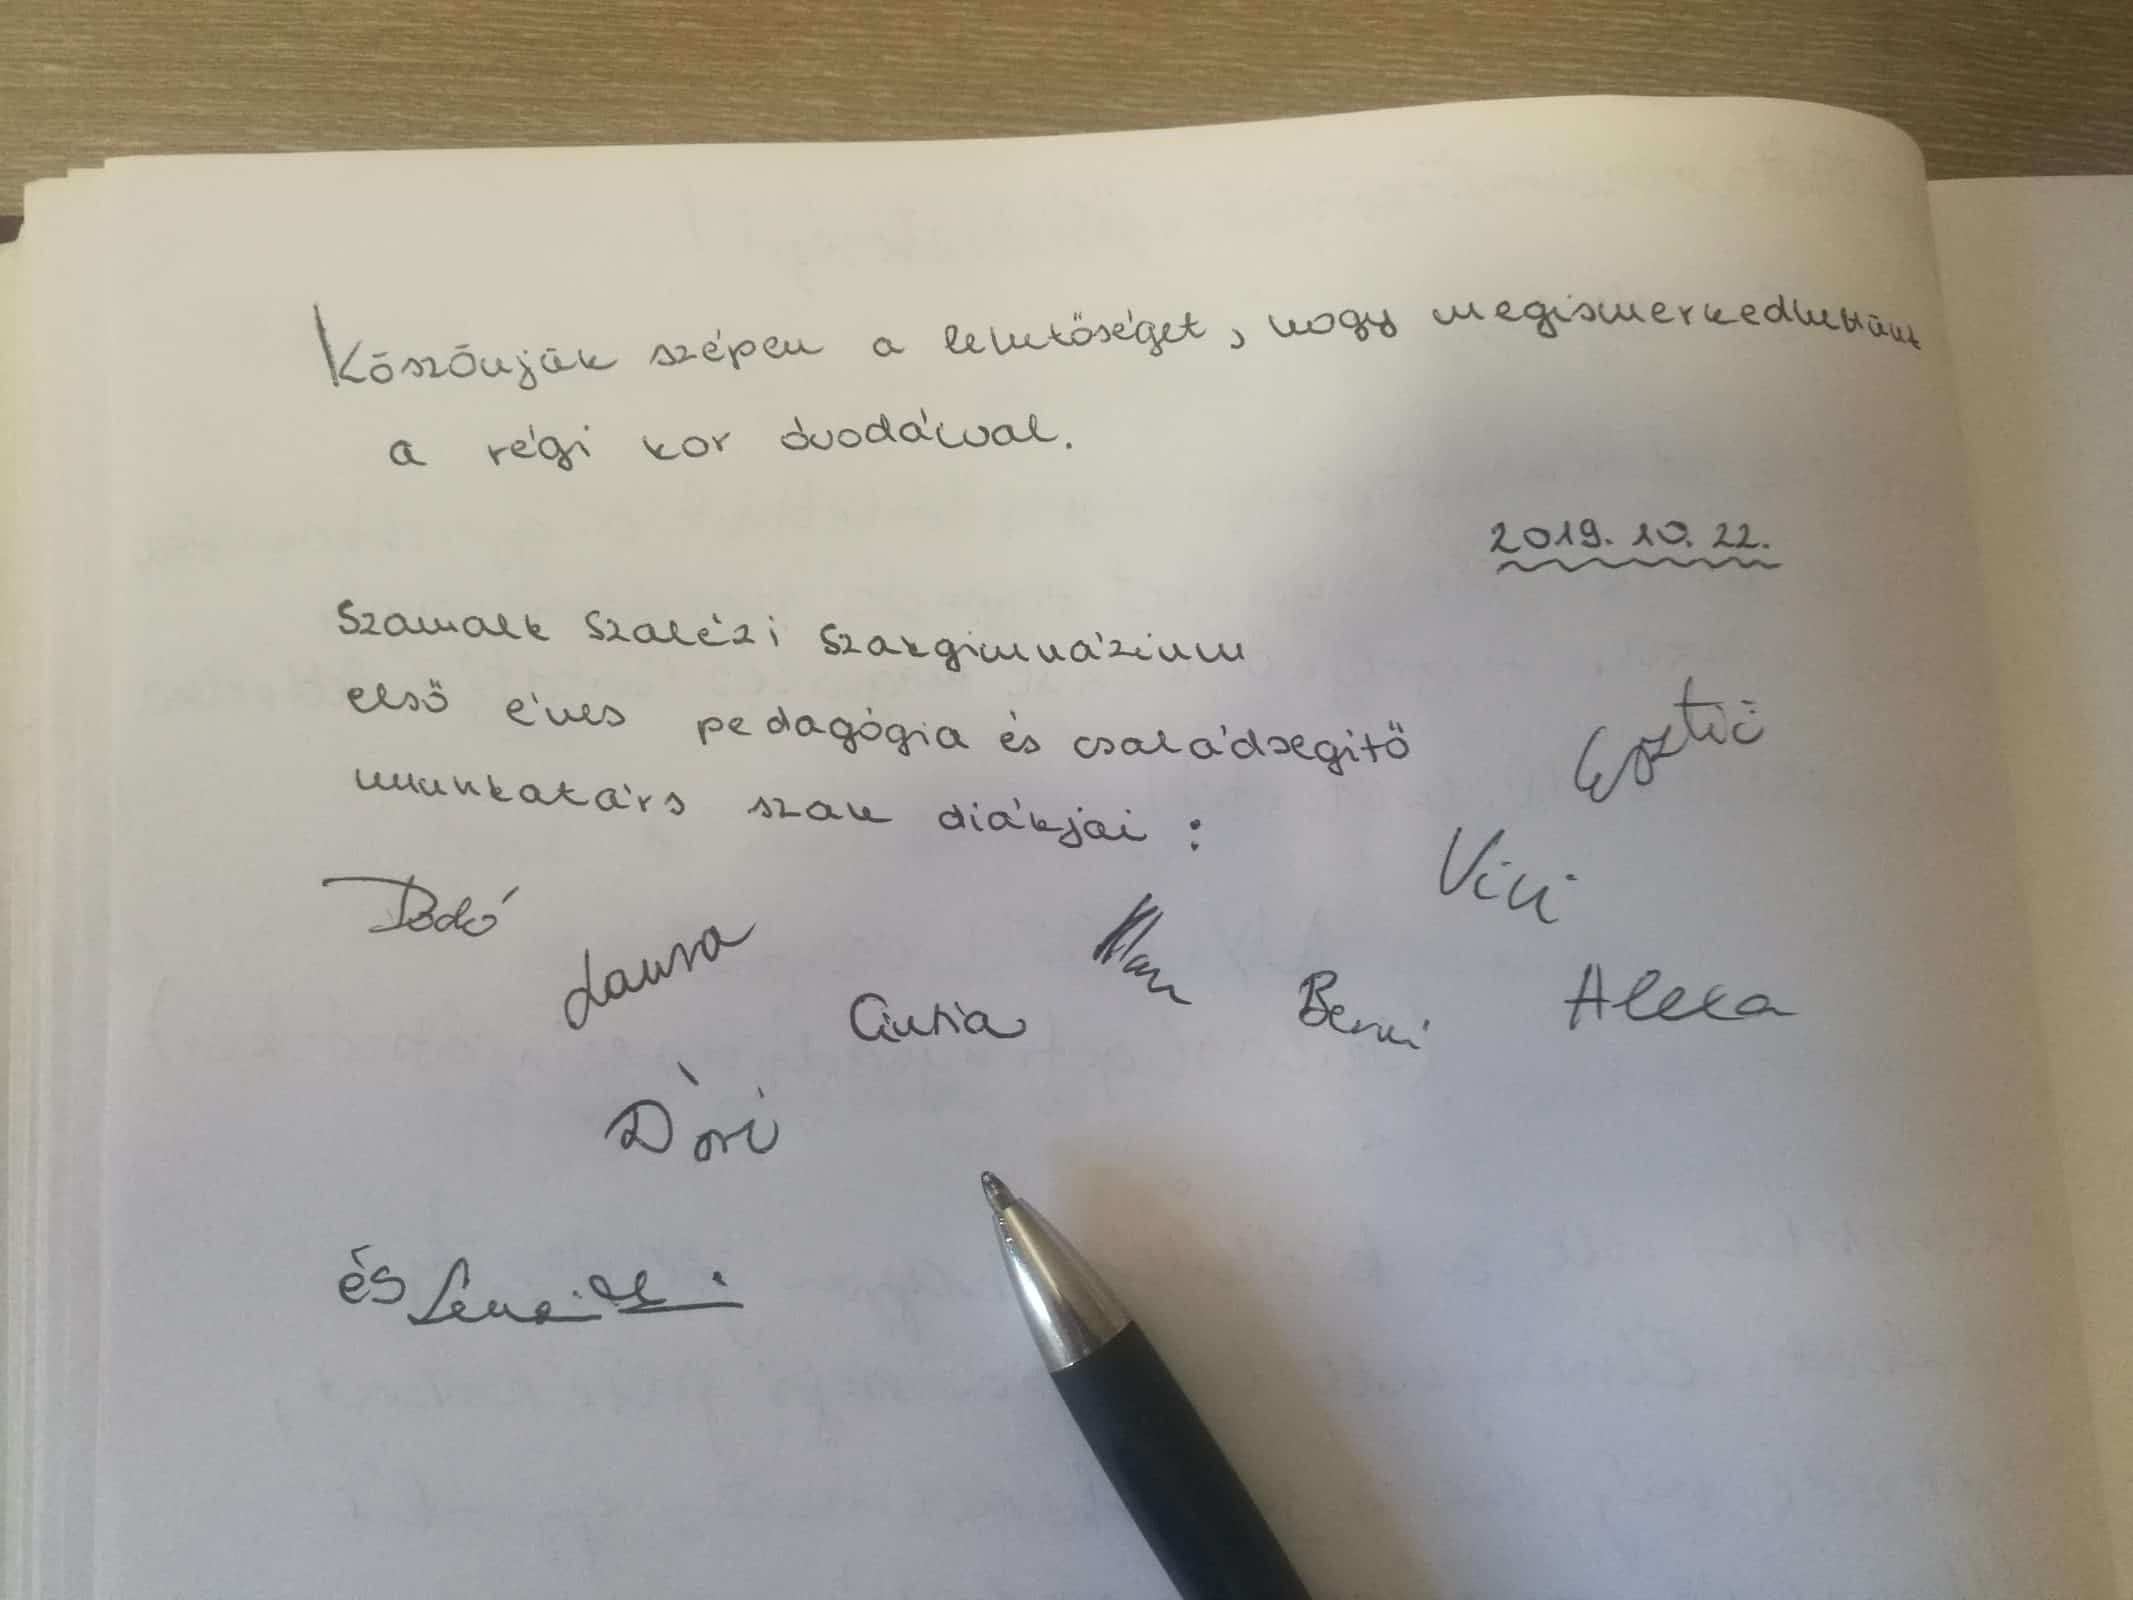 Köszönjük szépen a lehetőséget, hogy megismerkedhettünk
a régi kor óvodáival.
2019. 10. 22.
Szamalk Szalézi Szakgimnázium
első éves pedagógia és családsegítő
munkatárs szak diákjai :
Eszti
Vivi
Dodó
Laura
Cintia
Berni
Alexa
Dóri
és